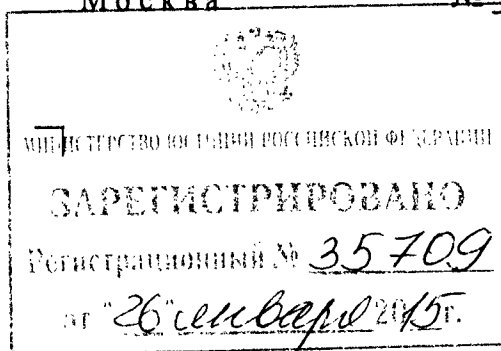 Москва №
МИНИСТЕРСТВО ЮСТИЦИИ РОССИЙСКОЙ ФЕДЕРАЦИИ
ЗАРЕГИСТРИРОВАНО
Регистрационный № 35709
от "26" января 2015г.